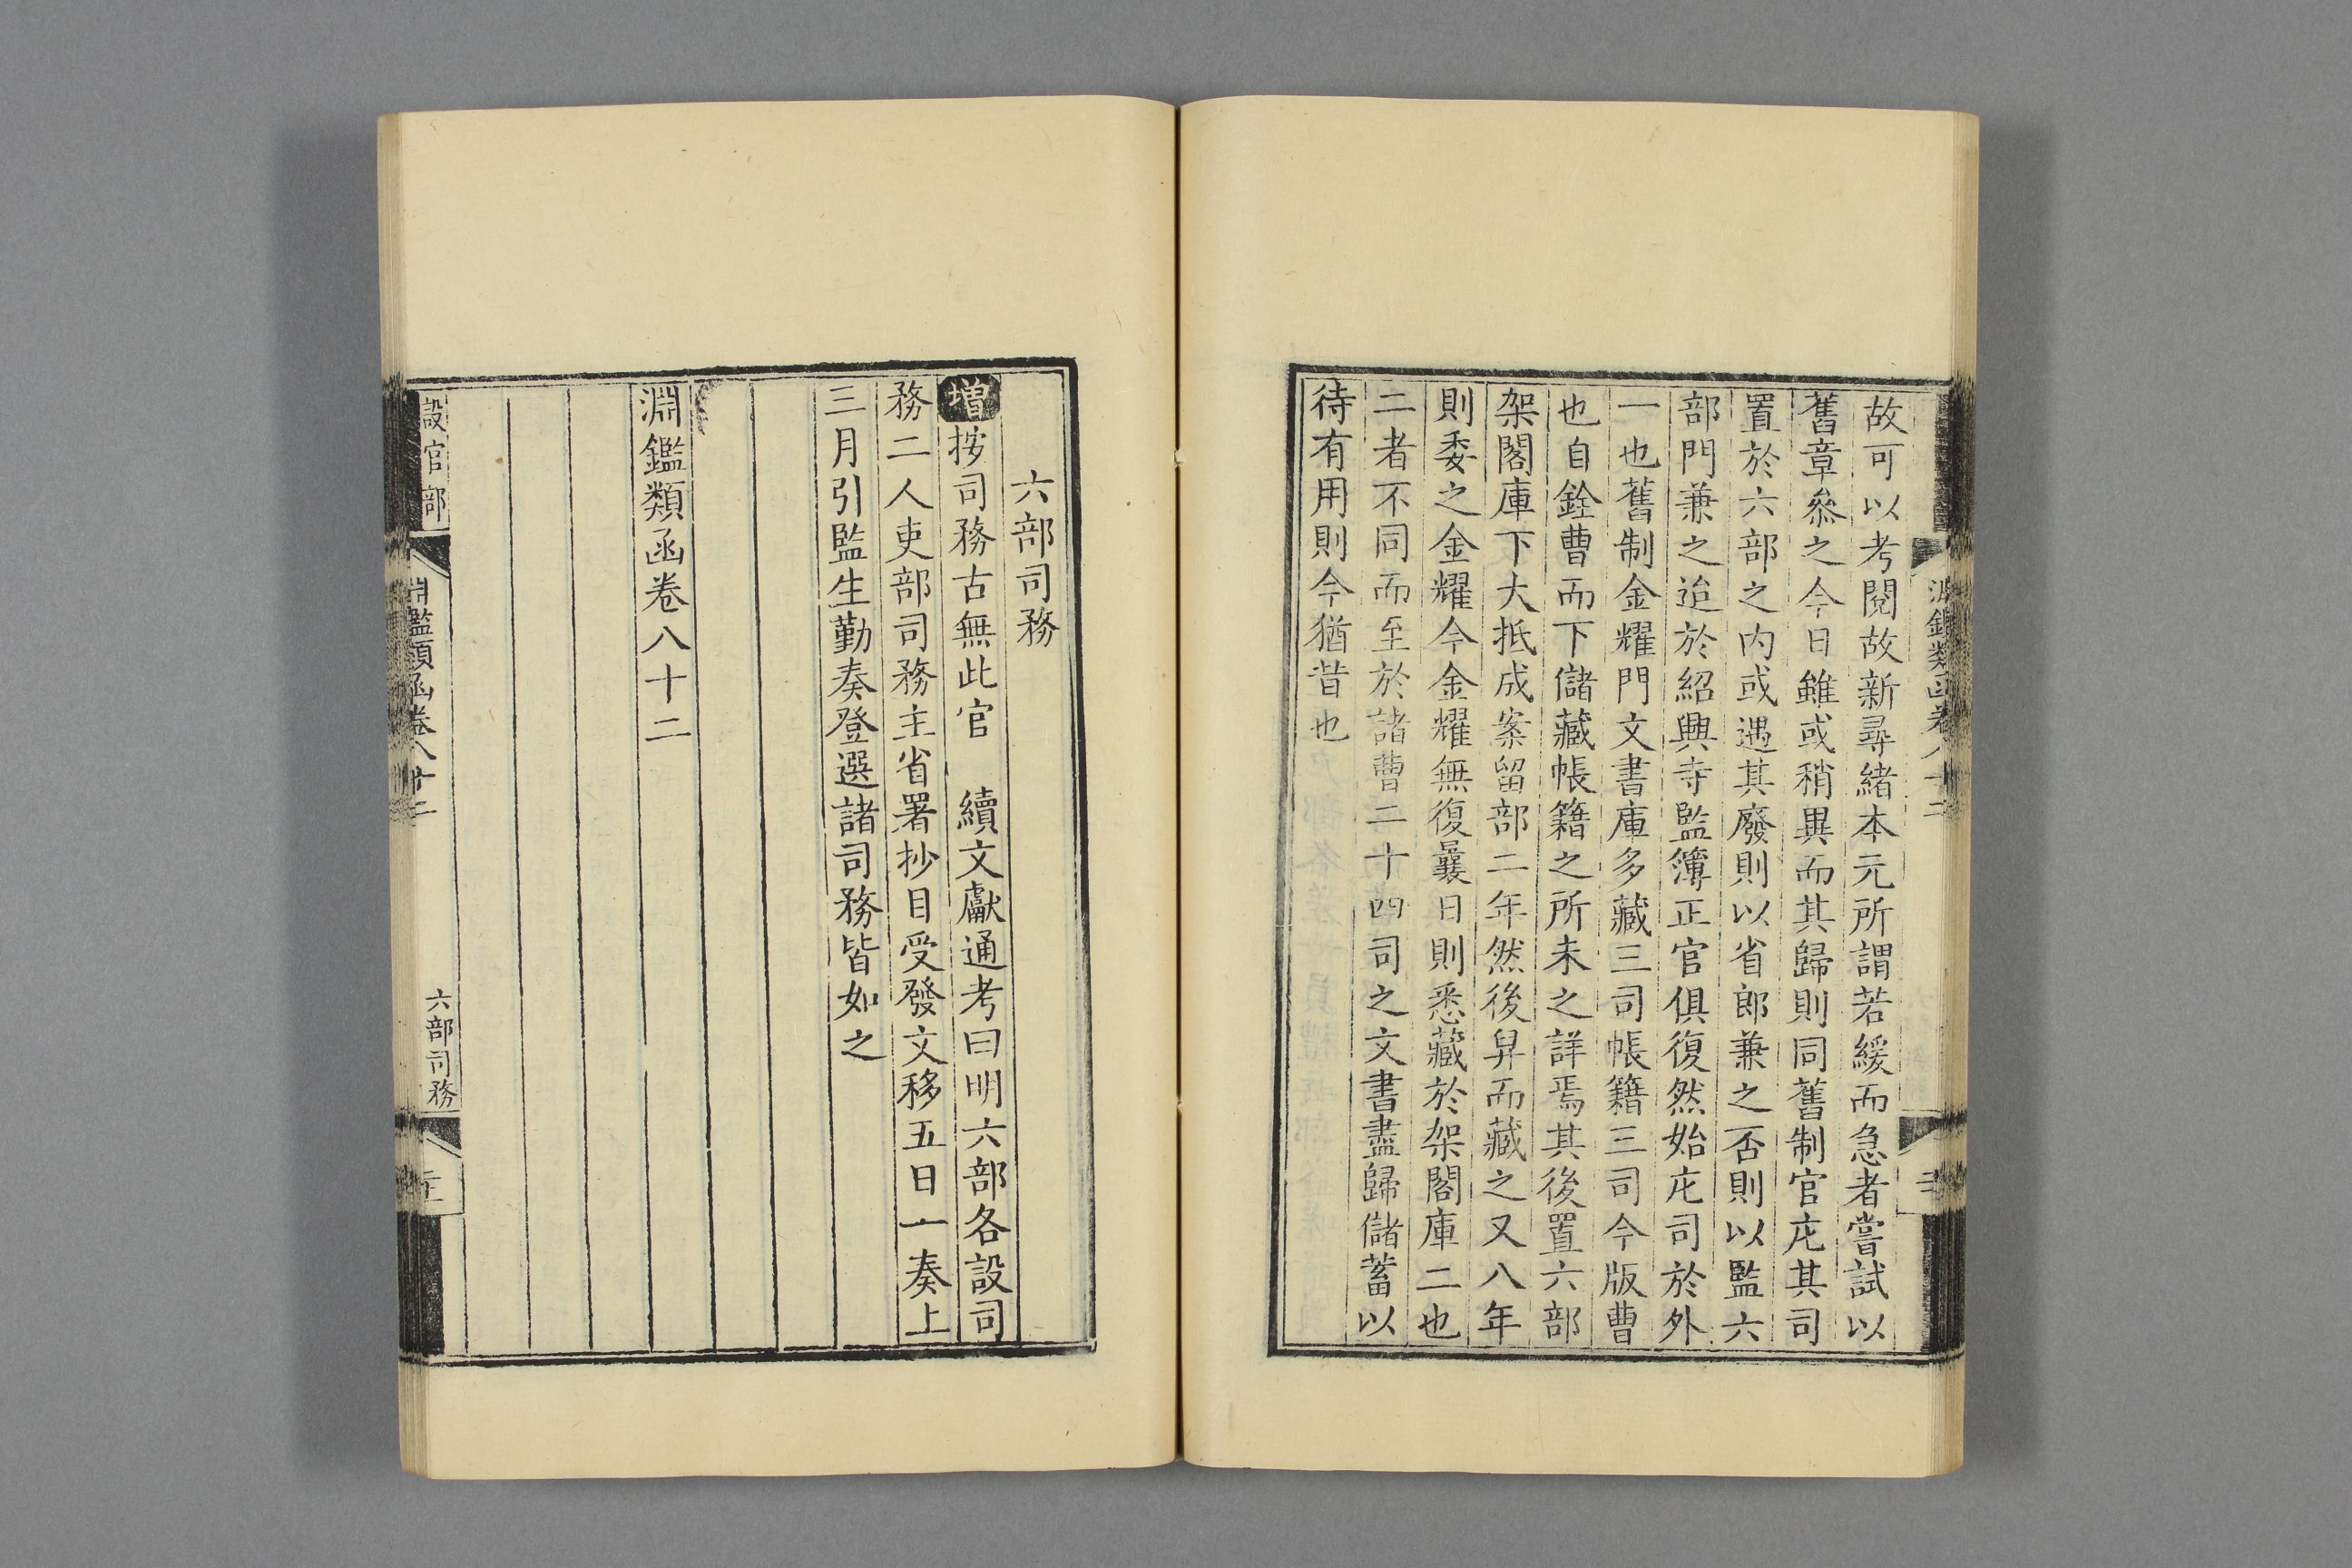 故可以考閱故新尋緒本元所謂若緩而急者嘗試以
舊章叅之今日雖或稍異而其歸則同舊制官庀其司
置於六部之內或遇其廢則以省郎兼之否則以監六
部門兼之迨於紹興寺監簿正官俱復然始庀司於外
一也舊制金耀門文書庫多藏三司帳籍三司今版曹
也自銓曹而下儲藏帳籍之所未之詳焉其後置六部
架閣庫下大抵成案留部二年然後舁而藏之又八年
則委之金耀今金耀無復曩日則悉藏於架閣庫二也
二者不同而至於諸曹二十四司之文書盡歸儲蓄以
待有用則今猶昔也
六部司務
增按司務古無此官　續文獻通考曰明六部各設司
務二人吏部司務主省署抄目受發文移五日一奏上
三月引監生勤奏登選諸司務皆如之
淵鑑類函卷八十二
設官部
淵鑑類函卷八十二
六部司務